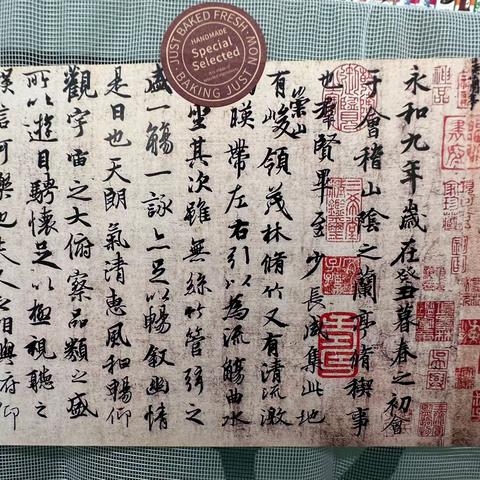 JUST BAKED FRESH
HANDMADE
Special
Selected
BAKING JUST
永和九年歲在癸丑暮春之初會
于會稽山陰之蘭亭脩稧事
也群賢畢至少長咸集此地
有崇山峻領茂林脩竹又有清流激
暎帶左右引以為流觴曲水
坐其次雖無絲竹管弦之
盛一觴一詠亦足以暢敘幽情
是日也天朗氣清惠風和暢仰
觀宇宙之大俯察品類之盛
所以遊目騁懷足以極視聽之
娛信可樂也夫人之相與俯仰